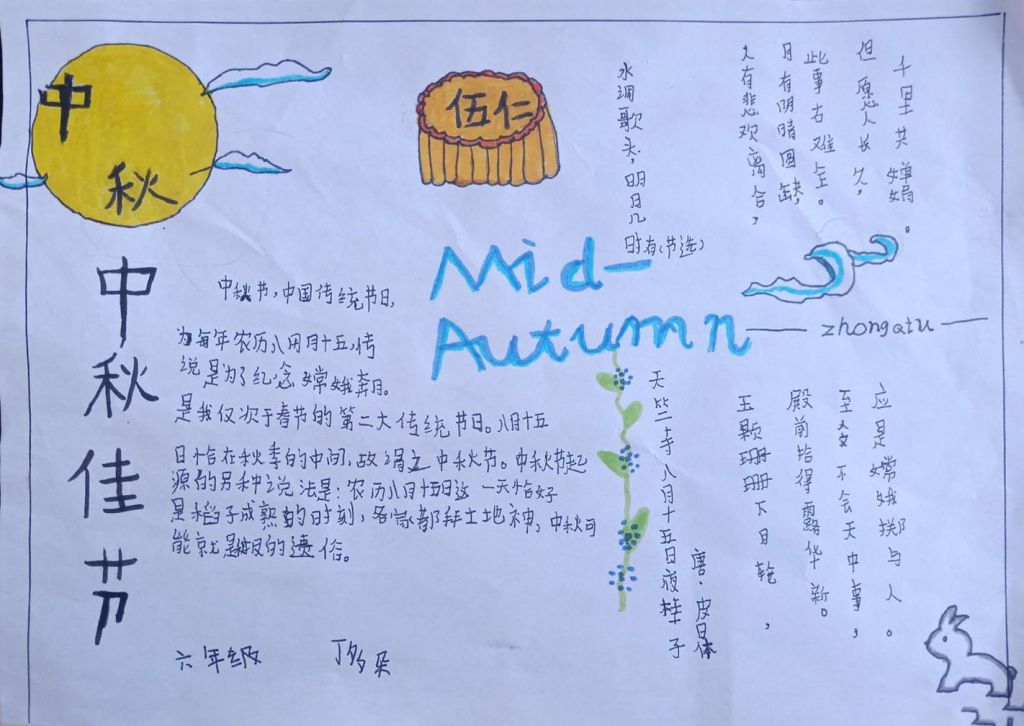 中
秋
伍仁
中秋佳节
Mid-
Autumn
zhongatu
中秋节,中国传统节日,
为每年农历八月月十五,传
说是为了纪念嫦娥奔月。
是我仅次于春节的第二大传统节日。八月十五
日恰在秋季的中间,故谓之中秋节。中秋节起
源的另种之说法是:农历八月十五日这一天恰好
是稻子成熟的时刻,各家都拜土地神,中秋可
能就是秋报的遗俗。
水调歌头,明月几
时有(节选)
人有悲欢离合,
月有阴晴圆缺,
此事古难全。
但愿人长久,
千里共婵娟。
天竺寺八月十五日夜桂子
唐·皮日休
玉颗珊珊下月轮,
殿前拾得露华新。
至今不会天中事,
应是嫦娥掷与人。
六年级 丁多朵